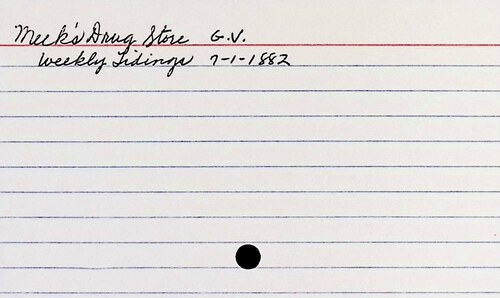 Meek's Drug Store G.V.
Weekly Tidings 7-1-1882